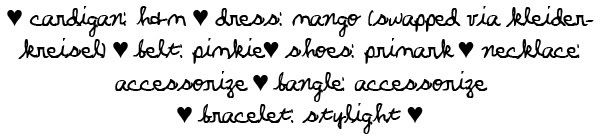 ♥ cardigan: h&m ♥ dress: mango (swapped via kleider-
kreisel) ♥ belt: pinkie♥ shoes: primark ♥ necklace:
accessorize ♥ bangle: accessorize
♥ bracelet: stylight ♥